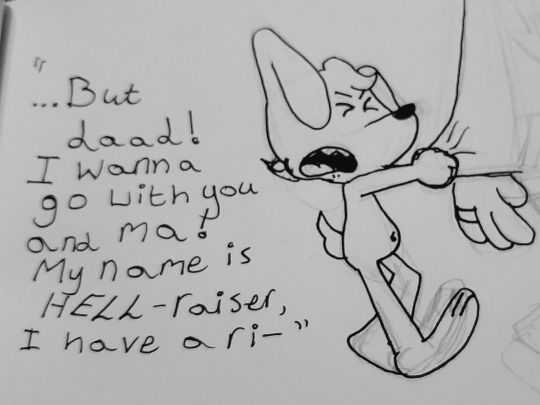 "
...But
daad!
I wanna
go with you
and ma!
My name is
HELL-raiser,
I have a ri-"